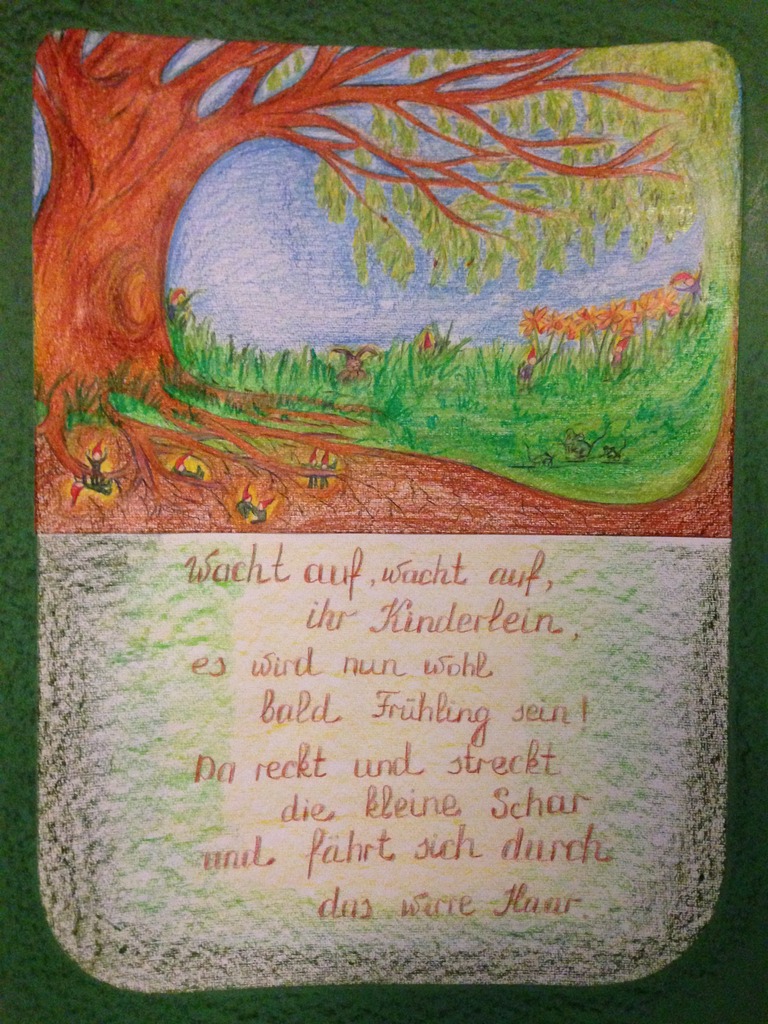 Wacht auf, wacht auf,
ihr Kinderlein,
es wird nun wohl
bald Frühling sein!
Da reckt und streckt
die kleine Schar
und fährt sich durch
das wirre Haar.